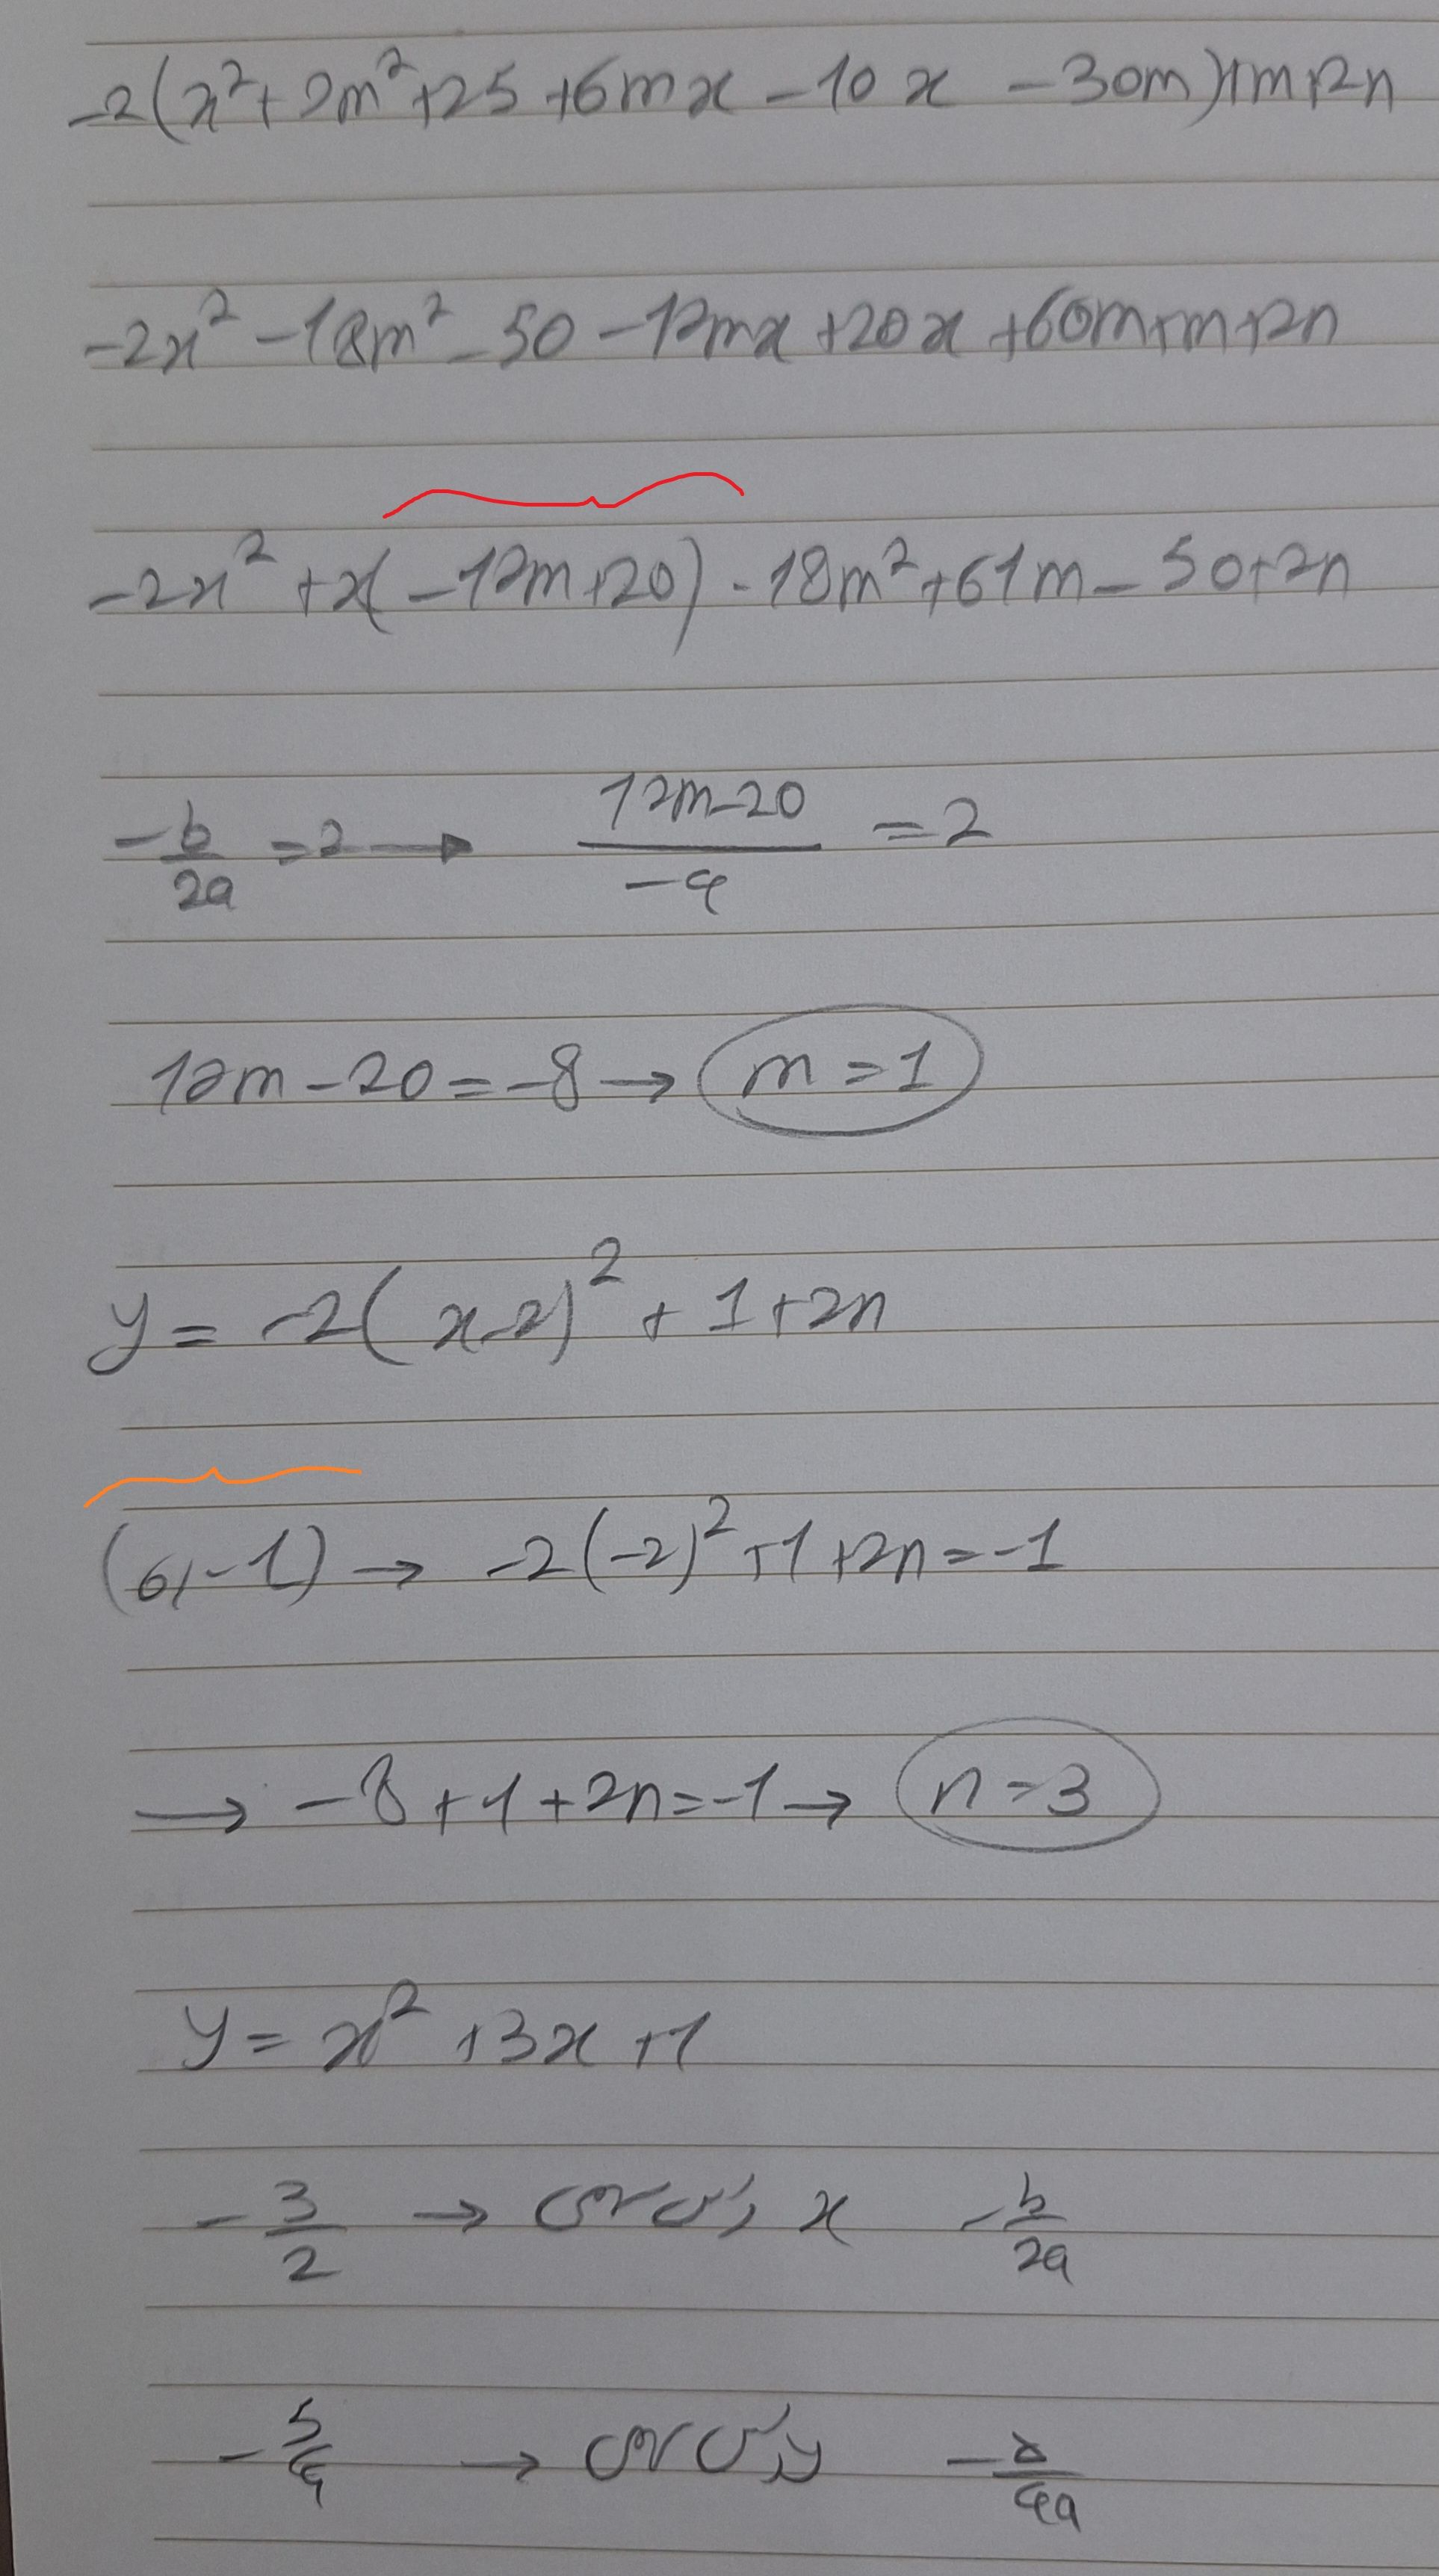 -2(x²+9m²+25+6mx-10x-30m)+m+2n
-2x²-18m²-50-12mx+20x+60m+m+2n
-2x²+x(-12m+20)-18m²+61m-50+2n
-b/2a=2→ (12m-20)/-4=2
12m-20=-8→ m=1
y=-2(x-2)²+1+2n
(0,-1)→ -2(-2)²+1+2n=-1
→ -8+1+2n=-1→ n=3
y=x²+3x+1
-3/2 → x راس -b/2a
-5/4 → y راس -Δ/4a